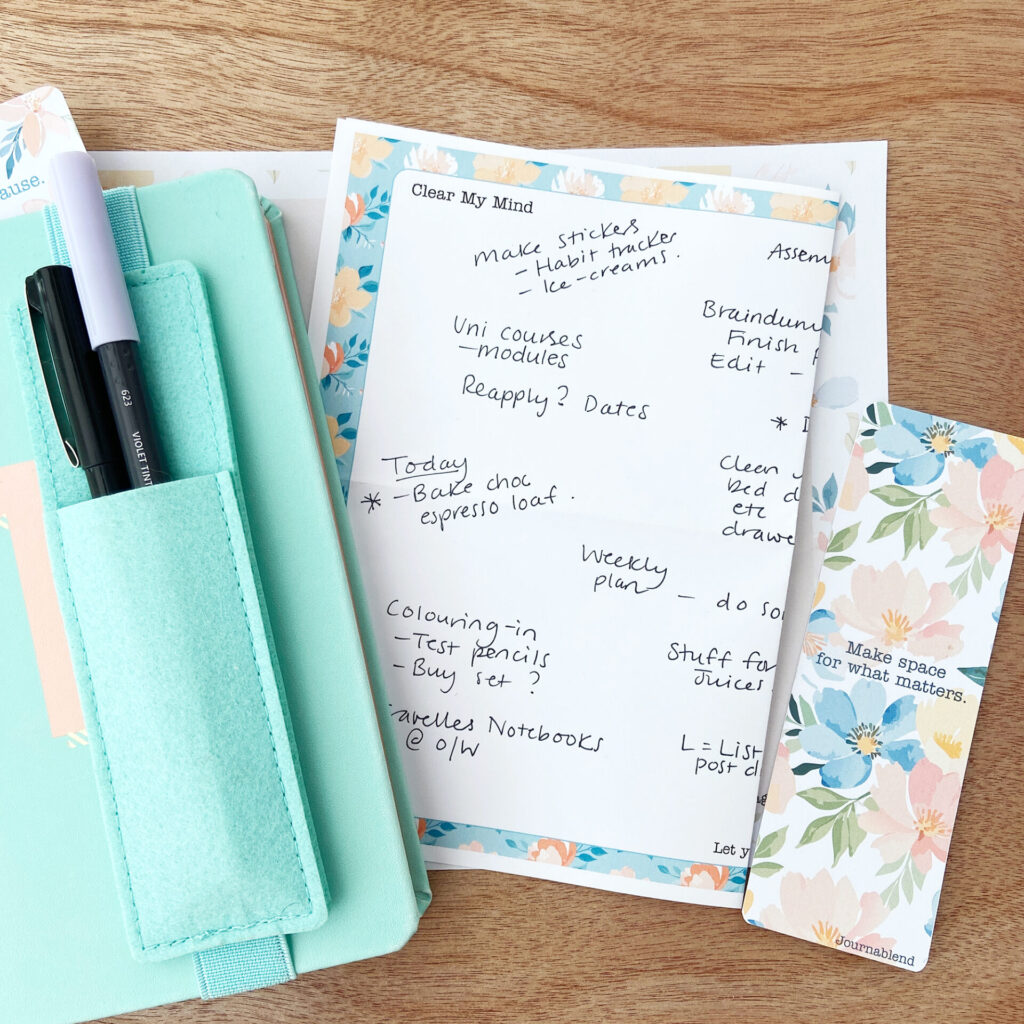 ause.
623
VIOLET TINT
Clear My Mind
make stickers
- Habit tracker
- Ice-creams.
Uni courses
- modules
Reapply? Dates
Today
* - Bake choc
espresso loaf.
Colouring-in
- Test pencils
- Buy set ?
avelles Notebooks
@ O/W
Assem
Braindum
Finish
Edit -
*
Clean
bed d
etc
drawe
Weekly
plan - do so
Stuff for
Juices
L = List
post d
Let y
Make space
for what matters.
Journablend